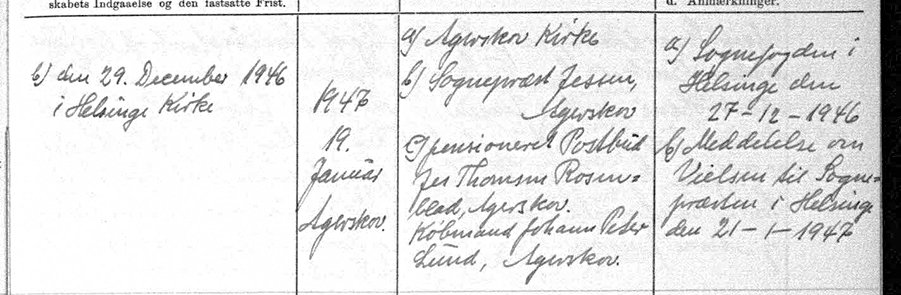 skabets Indgaaelse og den fastsatte Frist.
d. Anmærkninger.
b) den 29. December 1946
i Helsinge Kirke
1947
19.
Januar
Agerskov.
a) Agerskov Kirke
b) Sognepræst Jessen,
Agerskov
c) pensioneret Postbud
Jes Thomsen Rosen=
blad, Agerskov.
Købmand Johann Peter
Lund, Agerskov.
a) Sognefogden i
Helsinge den
27-12-1946
b) Meddelelse om
Vielsen til Sogne=
præsten i Helsinge
den 21-1-1947